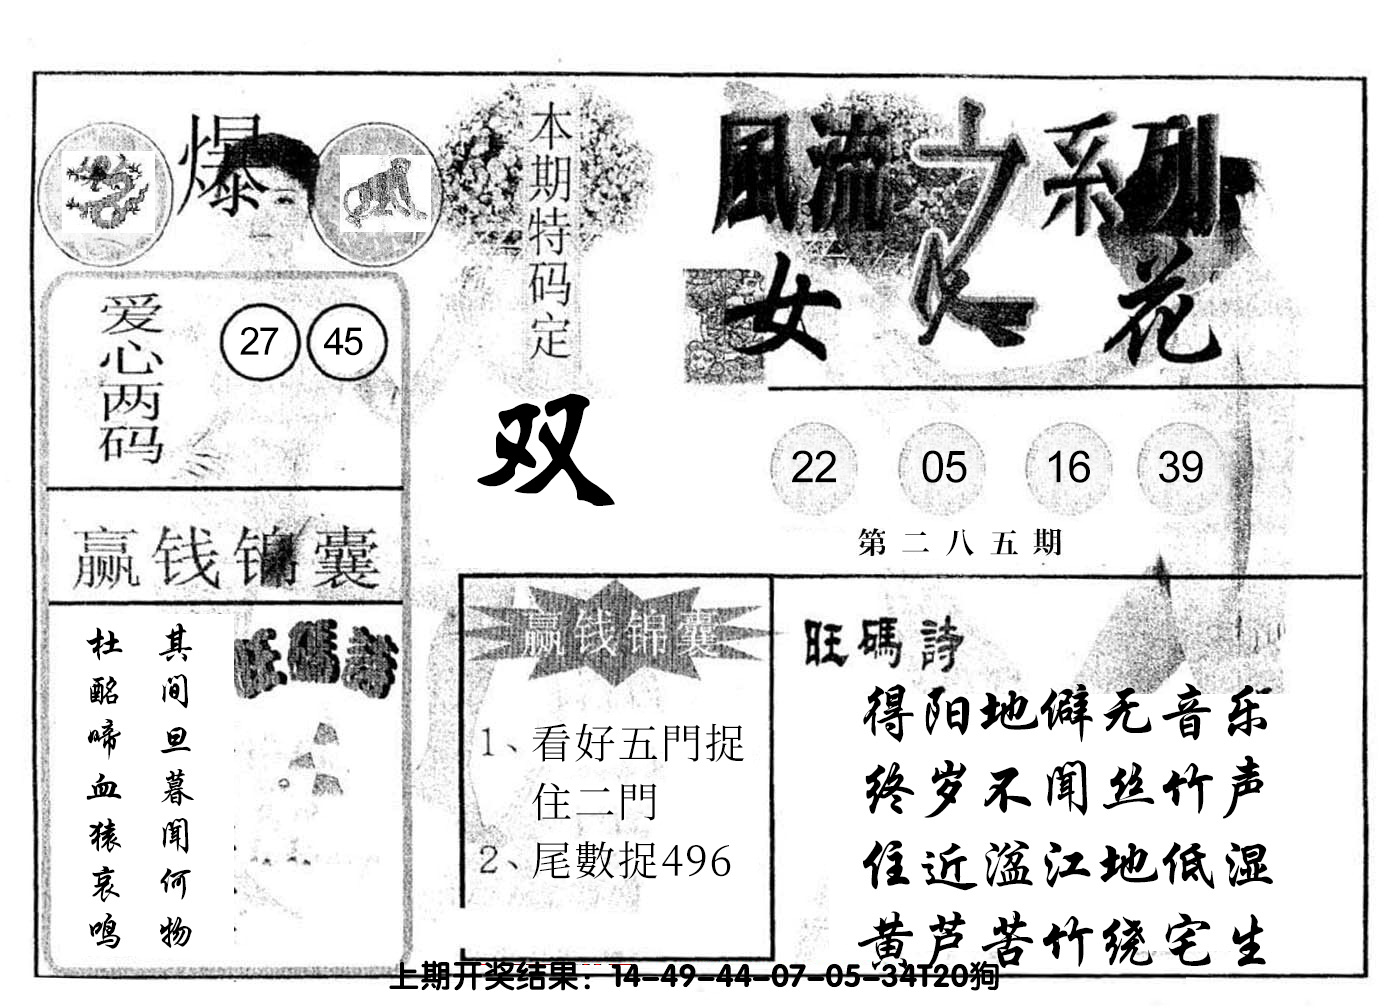 爆
本期特码定
双
風流之系列
女人花
爱心两码
27 45
22 05 16 39
第二八五期
赢钱锦囊
其间旦暮闻何物
杜酩啼血猿哀鸣
旺碼詩
赢钱锦囊
1、看好五門捉
住二門
2、尾數捉496
旺碼詩
得阳地僻无音乐
终岁不闻丝竹声
住近湓江地低湿
黄芦苦竹绕宅生
上期开奖结果：14-49-44-07-05-34T20狗